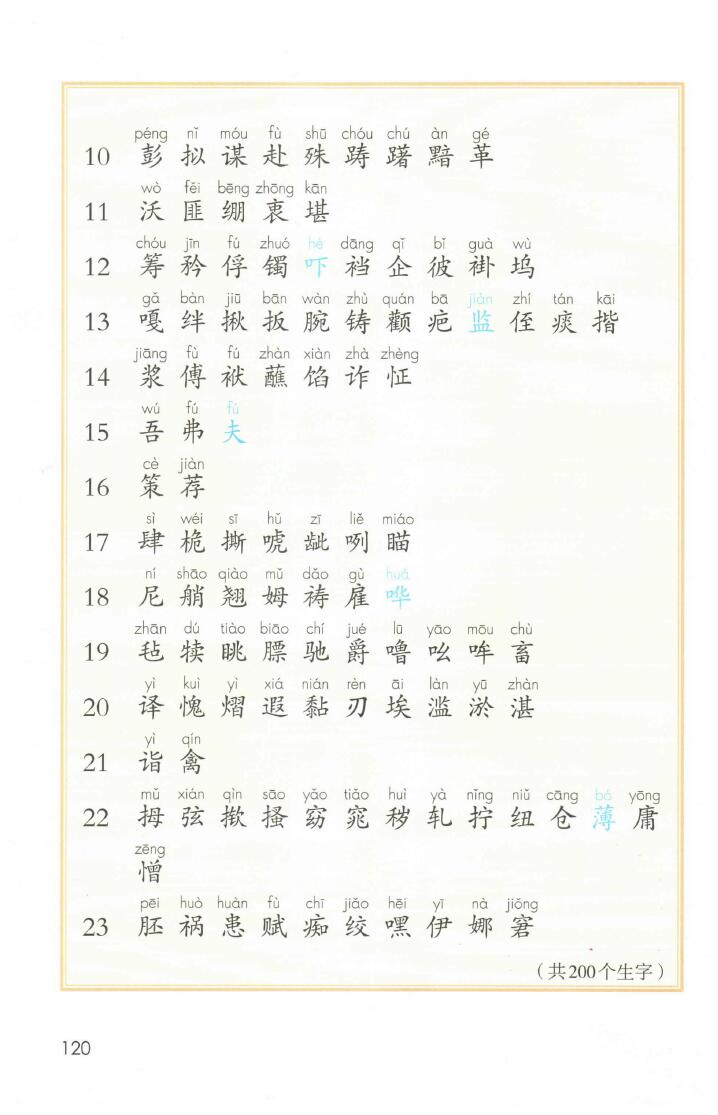 péng nǐ móu fù shū chóu chú àn gé
10 彭 拟 谋 赴 殊 踌 躇 黯 革
wò fěi bēng zhōng kān
11 沃 匪 绷 衷 堪
chóu jīn fú zhuó hè dāng qǐ bǐ guà wù
12 筹 矜 俘 镯 吓 裆 企 彼 褂 坞
gǎ bàn jiū bān wàn zhù quán bā jiàn zhí tán kāi
13 嘎 绊 揪 扳 腕 铸 颧 疤 监 侄 痰 揩
jiāng fù fú zhàn xiàn zhà zhèng
14 浆 傅 袱 蘸 馅 诈 怔
wú fú fú
15 吾 弗 夫
cè jiàn
16 策 荐
sì wéi sī hǔ zī liě miáo
17 肆 桅 撕 唬 龇 咧 瞄
ní shāo qiào mǔ dǎo gù huá
18 尼 艄 翘 姆 祷 雇 哗
zhān dú tiào biāo chí jué lū yāo mōu chù
19 毡 犊 眺 膘 驰 爵 噜 吆 哞 畜
yì kuì yì xiá nián rèn āi làn yū zhàn
20 译 愧 熠 遐 黏 刃 埃 滥 淤 湛
yì qín
21 诣 禽
mǔ xián qìn sāo yǎo tiǎo huì yà nǐng niǔ cāng bó yōng
22 拇 弦 揿 搔 窈 窕 秽 轧 拧 纽 仓 薄 庸
zēng
憎
pēi huò huàn fù chī jiǎo hēi yī nà jiǒng
23 胚 祸 患 赋 痴 绞 嘿 伊 娜 窘
（共200个生字）
120